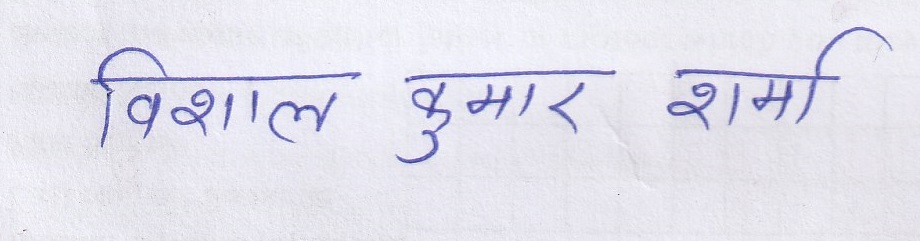 विशाल कुमार शर्मा